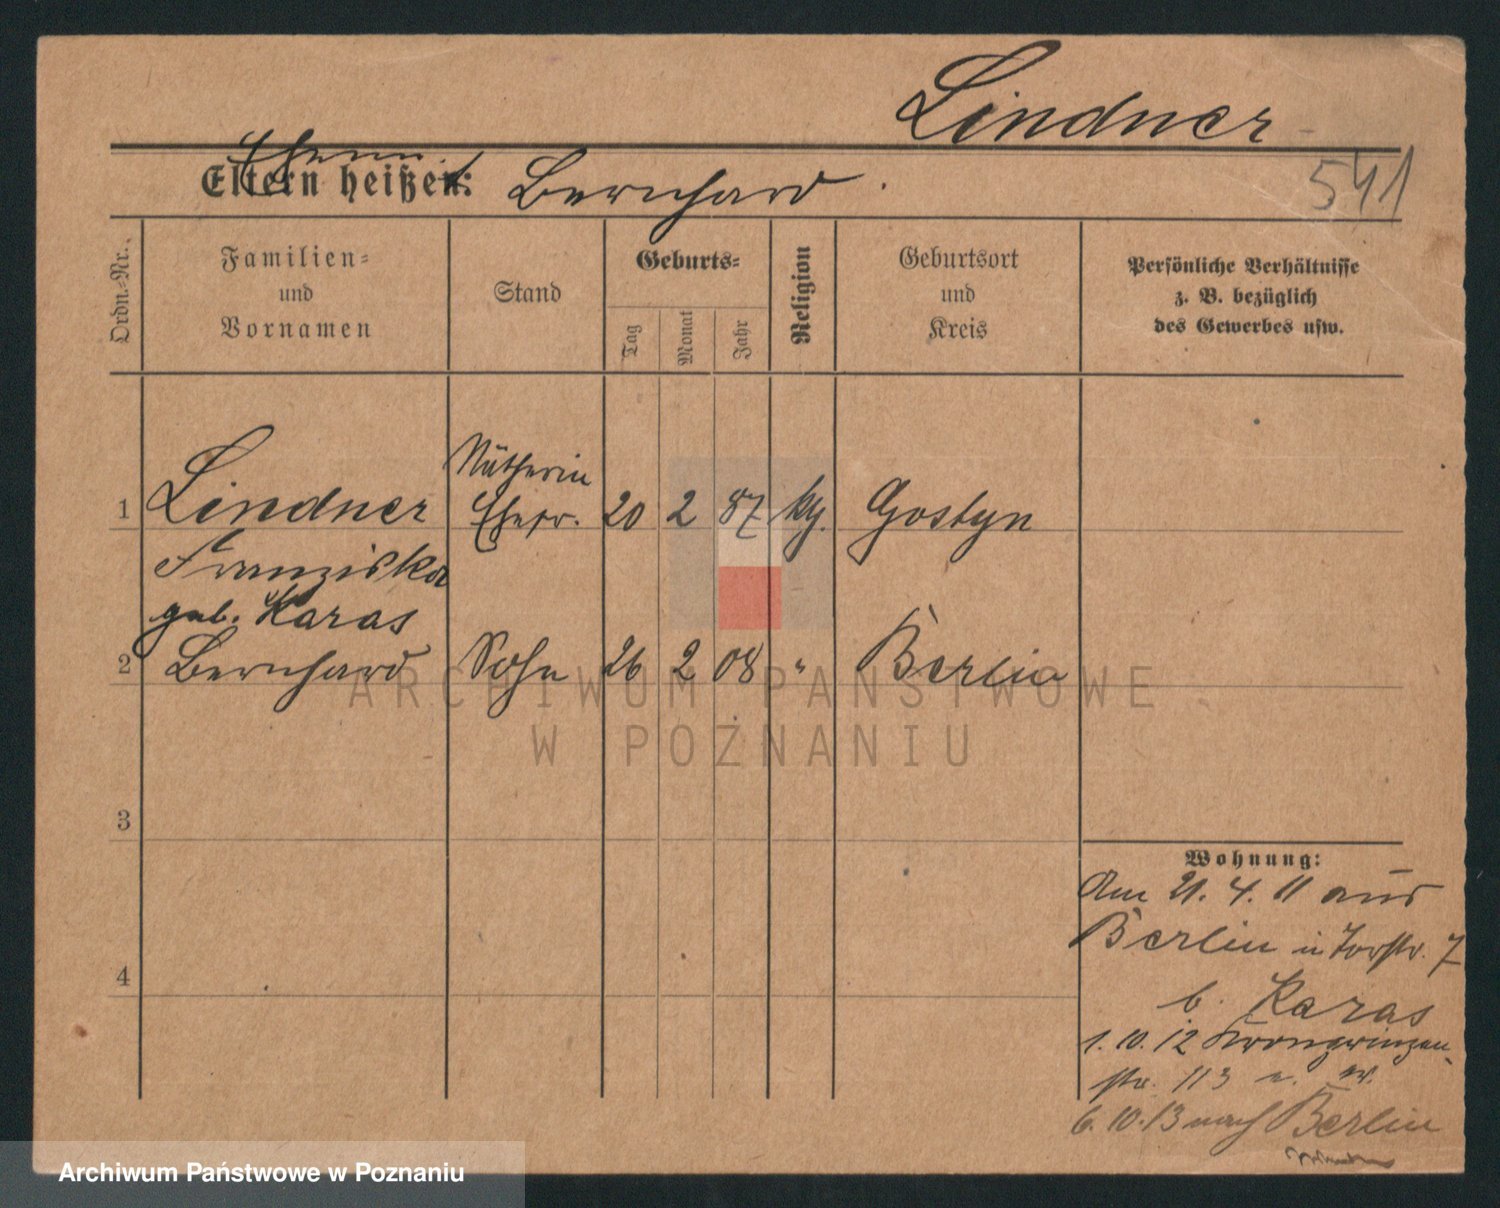 Lindner
Ehem.
Eltern heißen: Bernhard.
541
Ordn.-Nr.
Familien-
und
Vornamen
Stand
Geburts-
Tag
Monat
Jahr
Religion
Geburtsort
und
Kreis
Persönliche Verhältnisse
z. B. bezüglich
des Gewerbes usw.
Nätherin
1 Lindner Ehefr. 20 2 87 kg. Gostyn
Franziska
geb. Karas
2 Bernhard Sohn 26 2 08 " Berlin
ARCHIWUM PAŃSTWOWE
W POZNANIU
3
4
Wohnung:
Am 21. 4. 11 aus
Berlin in Torstr. 7
b. Karas
1. 10. 12 Kronprinzen-
str. 113
6. 10. 13 nach Berlin
Archiwum Państwowe w Poznaniu